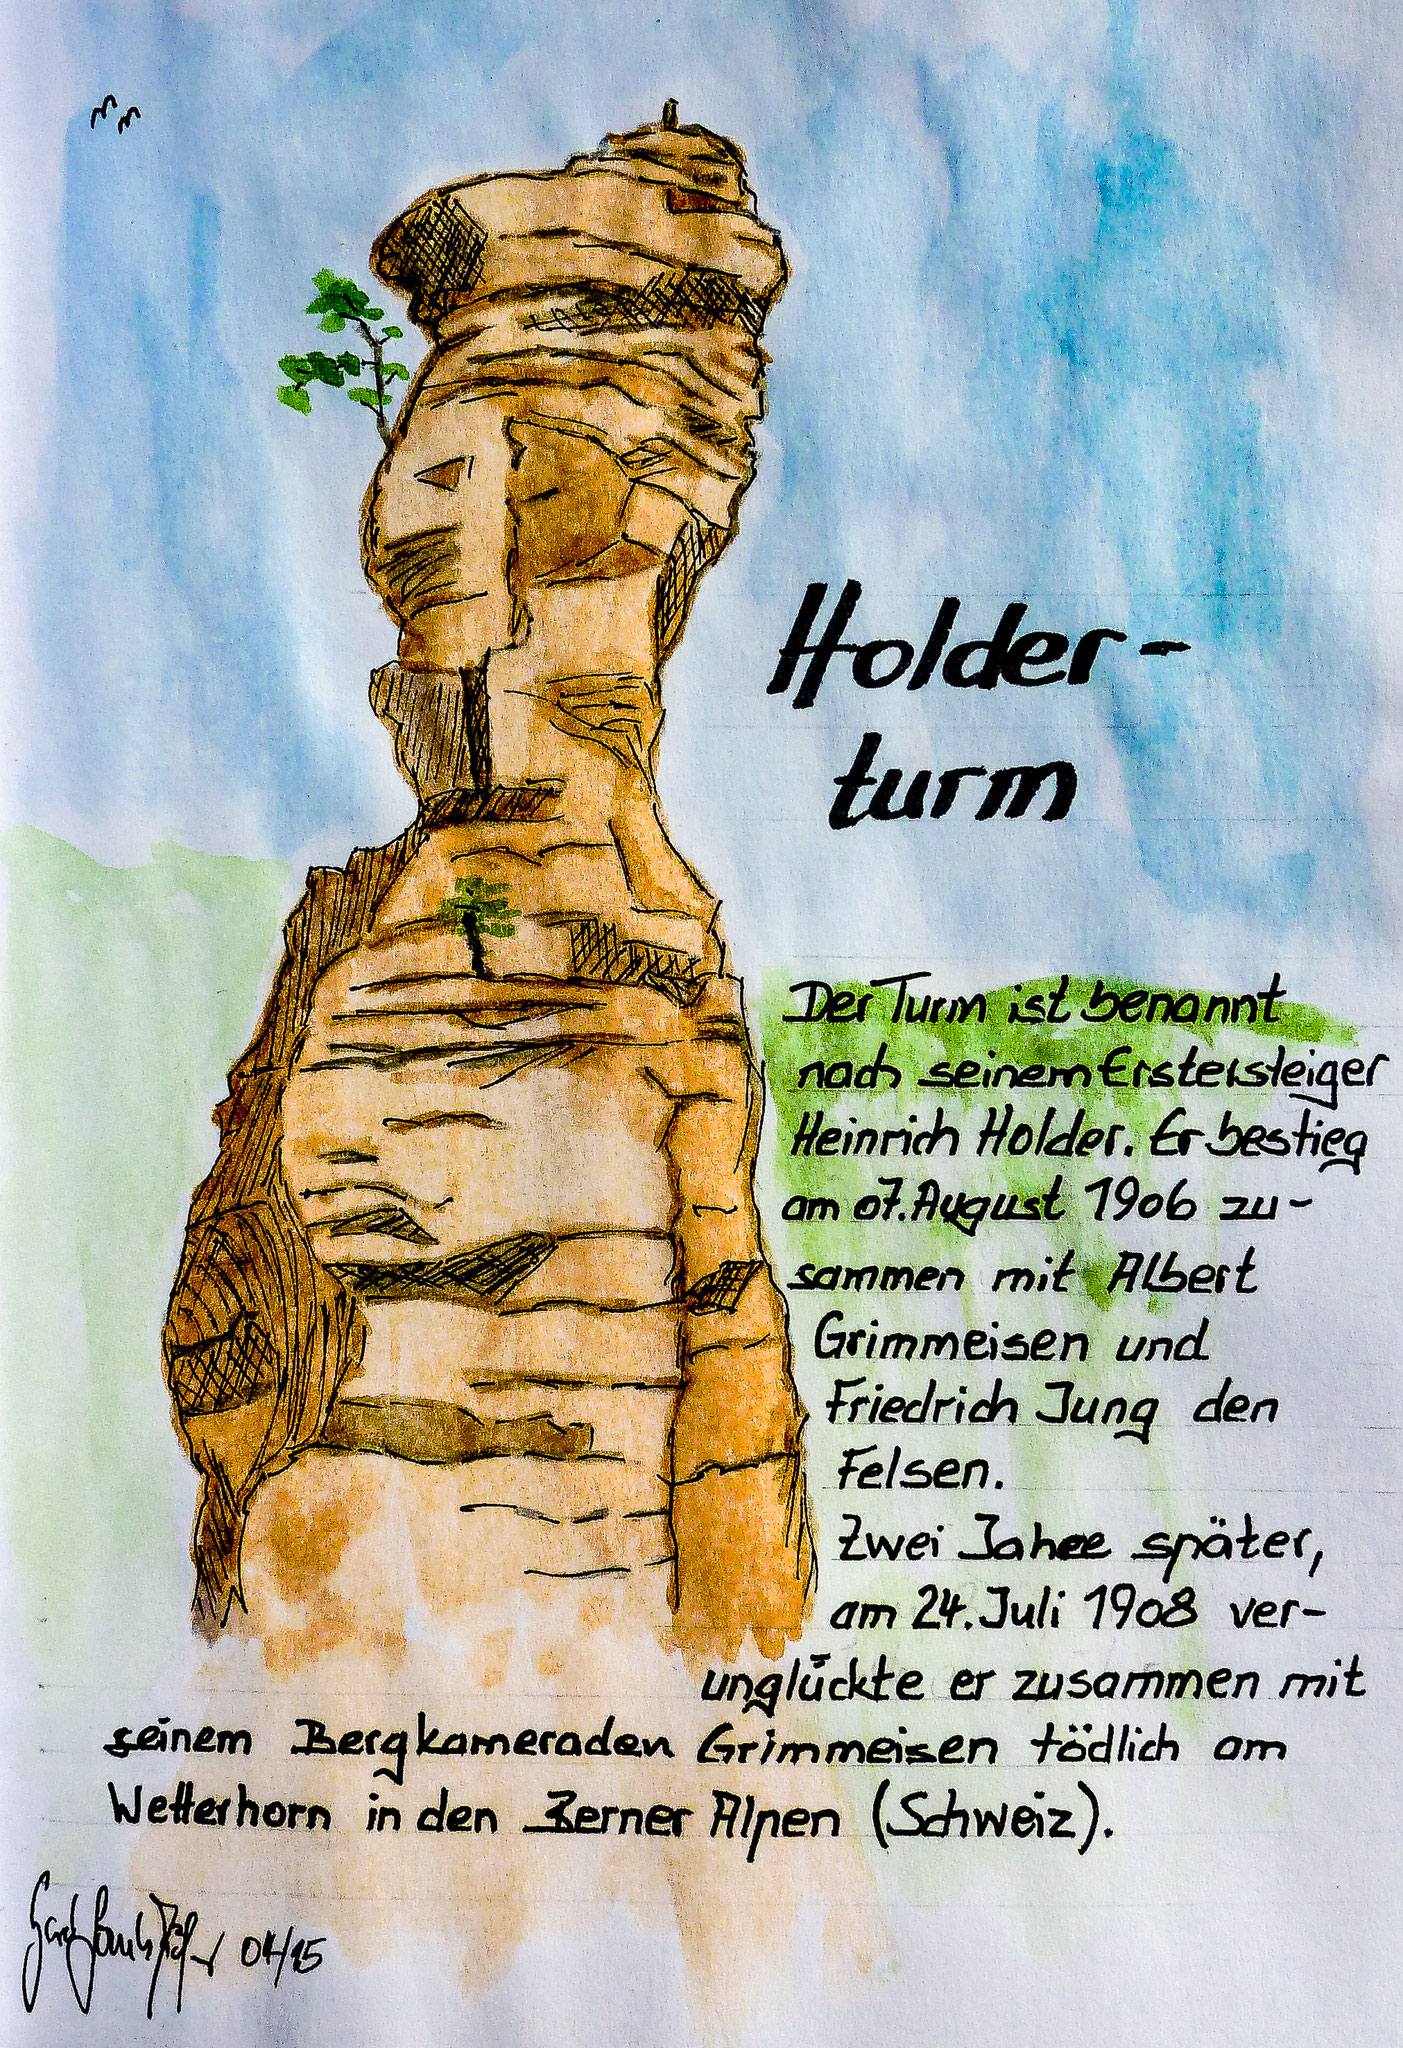 Holder-
turm
Der Turm ist benannt
nach seinem Erstersteiger
Heinrich Holder. Er bestieg
am 07. August 1906 zu-
sammen mit Albert
Grimmeisen und
Friedrich Jung den
Felsen.
Zwei Jahre später,
am 24. Juli 1908 ver-
unglückte er zusammen mit
seinem Bergkameraden Grimmeisen tödlich am
Wetterhorn in den Berner Alpen (Schweiz).
04/15